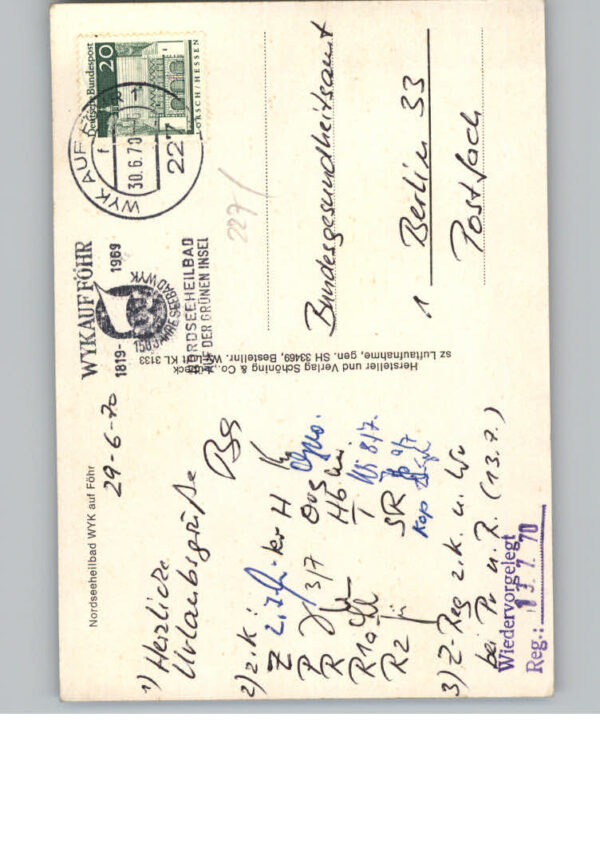 Nordseeheilbad WYK auf Föhr
29-6-70
1) Herzliche
Urlaubsgrüße
2) z.K.:
Z
P 3/7
R
R1a
R2
H
Org
Hb
I
SR
Kop
3) Z-Reg z.K. u. Wv
bei Pr u. R. (13.7.)
Wiedervorgelegt
13. 7. 70
Reg.:
Hersteller und Verlag Schöning & Co., Lübeck
sz Luftaufnahme, gen. SH 33469, Bestellnr. WF Luft KL 3133
WYK AUF FÖHR
1819-1969
150 JAHRE SEEBAD WYK
NORDSEEHEILBAD
AUF DER GRÜNEN INSEL
WYK AUF FÖHR
30.6.70
227
Deutsche Bundespost
20
LORSCH/HESSEN
227/
Bundesgesundheitsamt
1 Berlin 33
Postfach